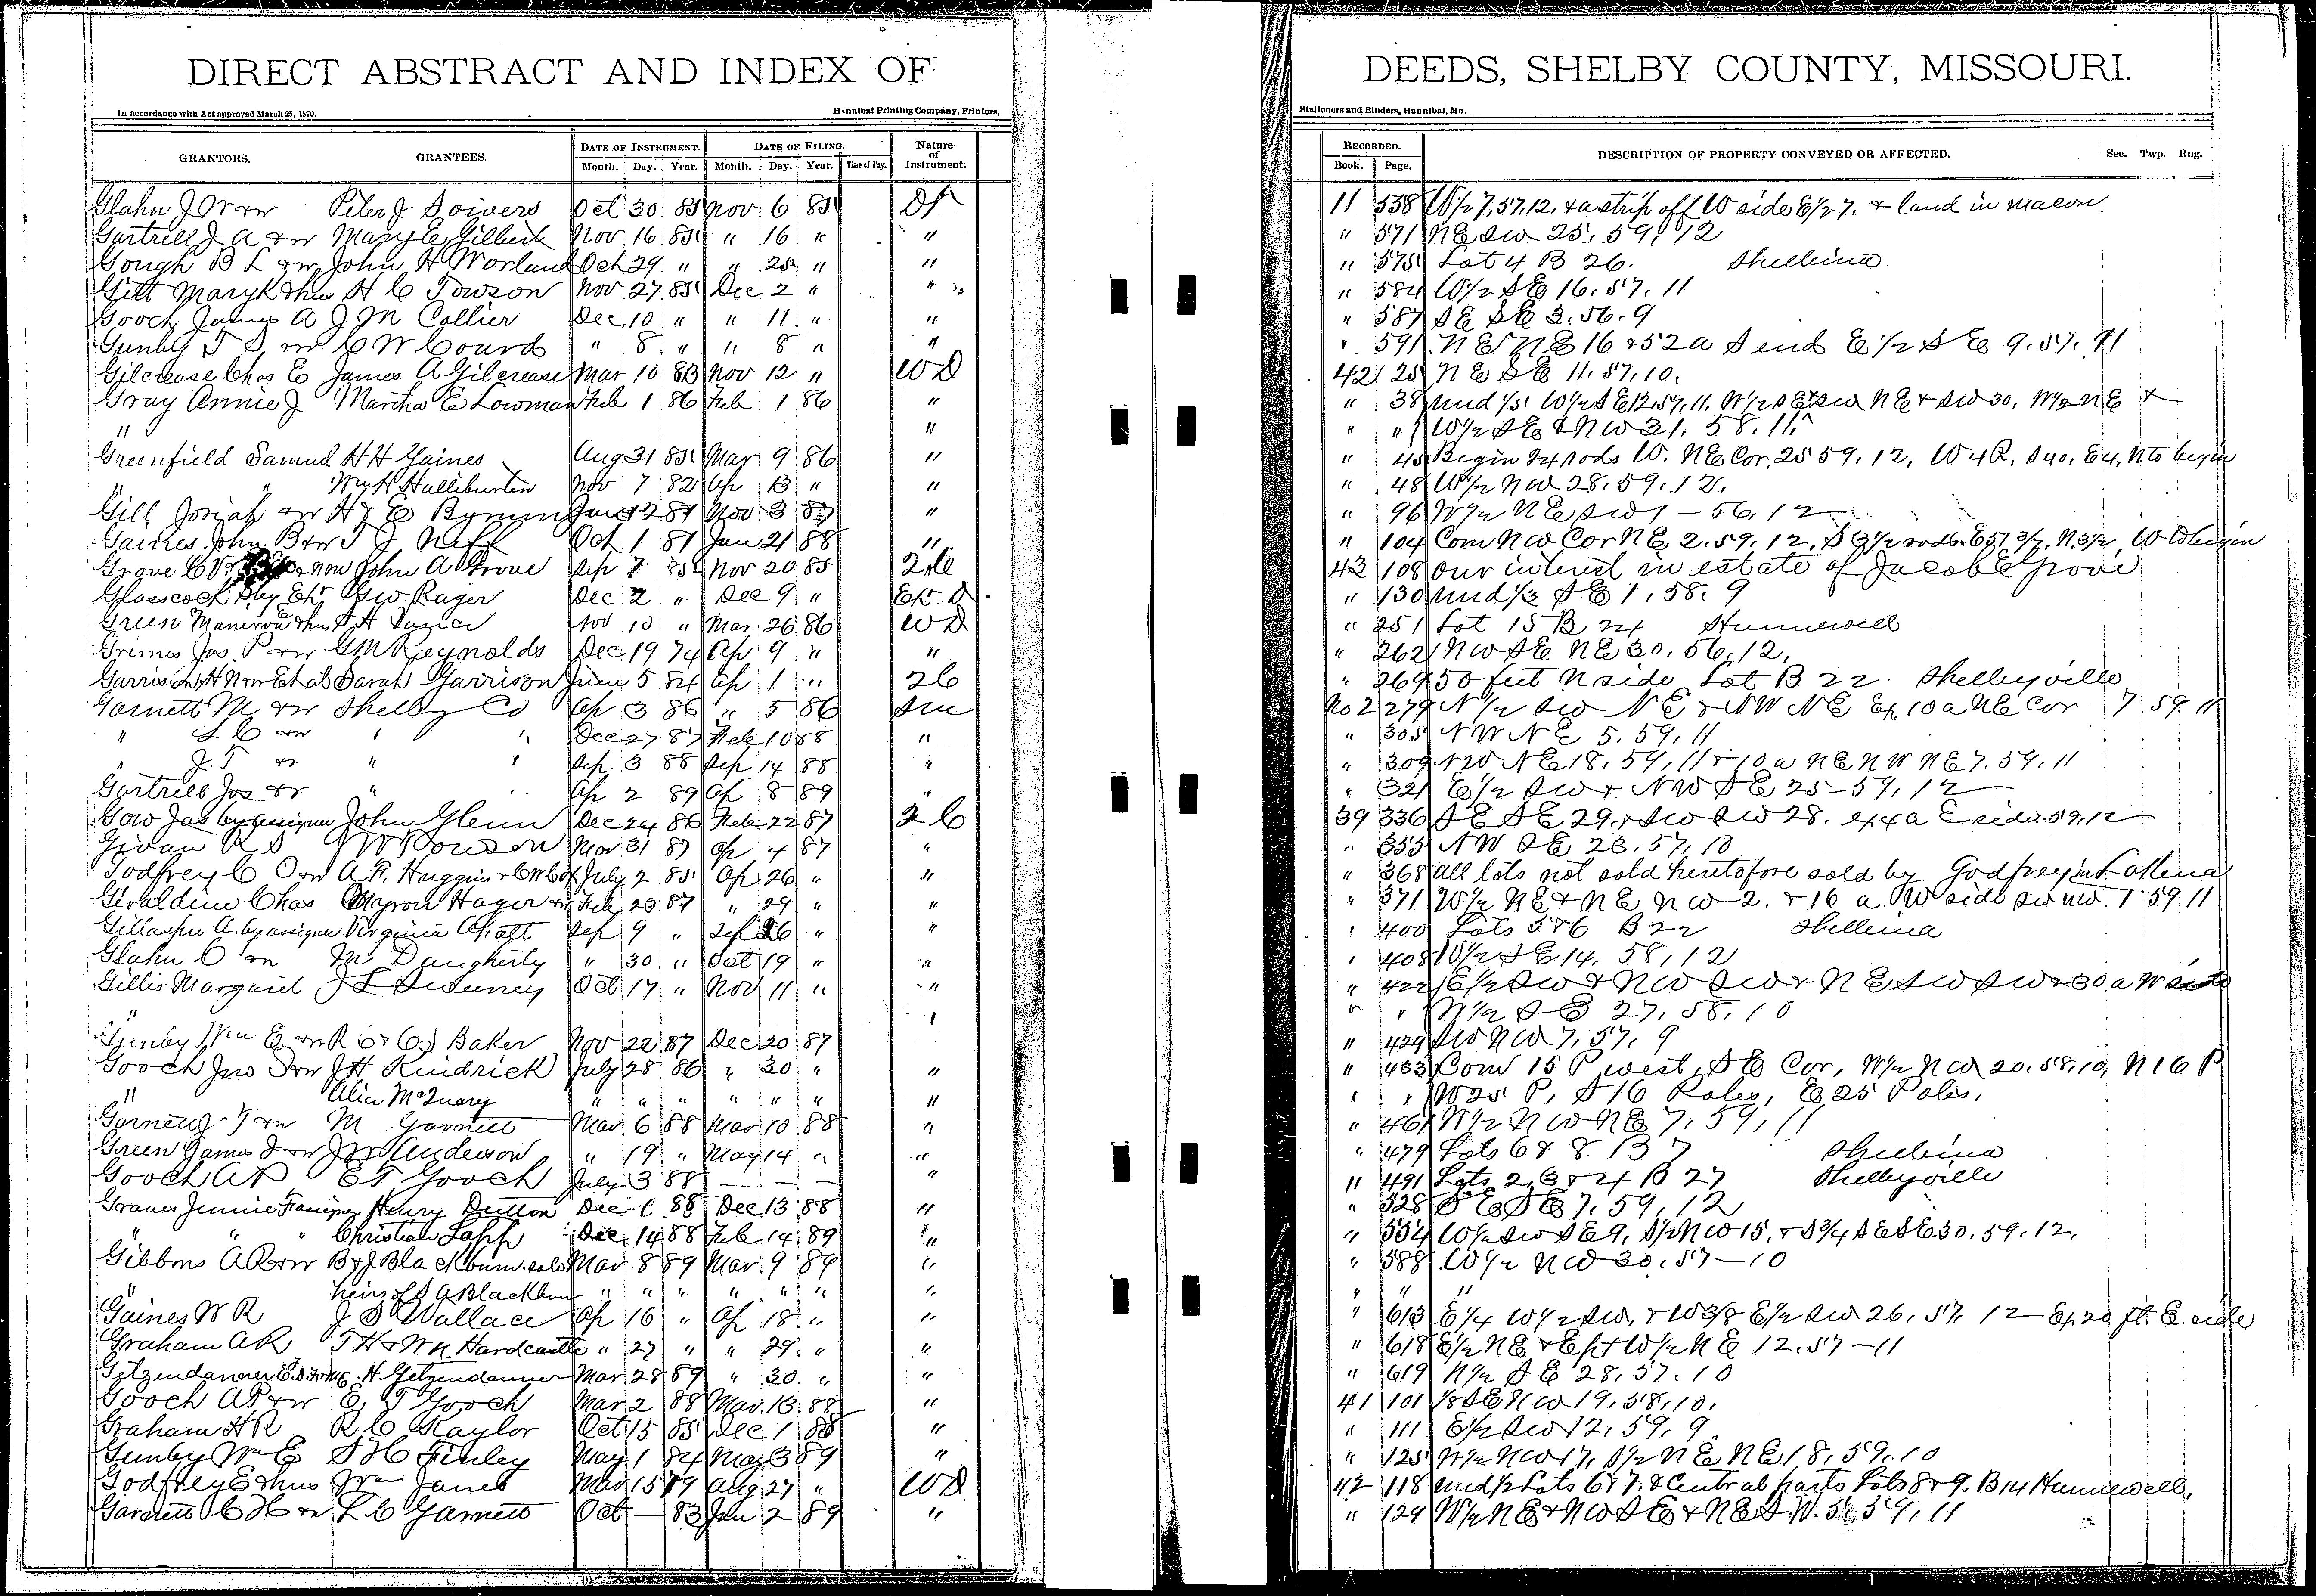 DIRECT ABSTRACT AND INDEX OF DEEDS, SHELBY COUNTY, MISSOURI.
In accordance with Act approved March 25, 1870. Hannibal Printing Company, Printers, Stationers and Binders, Hannibal, Mo.
GRANTORS. GRANTEES. DATE OF INSTRUMENT. DATE OF FILING. Nature of Instrument. RECORDED. DESCRIPTION OF PROPERTY CONVEYED OR AFFECTED. Sec. Twp. Rng.
Month. Day. Year. Month. Day. Year. Time of Day. Book. Page.
Glahn J W & w Peter J Soivers Oct 30 85 Nov 6 85 11 538 W 1/2 7, 57, 12, & a strip off W side E 1/2 7. & land in Macon
Gartrell J A & w Mary E Gilbert Nov 16 85 " 16 " " " 571 NE SW 25, 59, 12
Gough B L & w John H Worland Oct 29 " " 25 " " " 575 Lot 4 B 26. Shelbina
Gill Mary K & hus H C Towson Nov 27 85 Dec 2 " " " 584 W 1/2 SE 16, 57, 11
Gooch James A J M Collier Dec 10 " " 11 " " " 587 SE SE 3. 56. 9
Gunby T S & w C W Courd " 8 " " 8 " " " 591 NE NE 16 & 52 a S end E 1/2 SE 9. 57. 11
Gilcrease Chas E James A Gilcrease Mar 10 83 Nov 12 " WD 42 25 NE SE 11, 57, 10,
Gray Annie J Martha E Lowman Feb 1 86 Feb 1 86 " " 38 und 1/5 W 1/2 SE 12, 57, 11. W 1/2 SE & SW NE & SW 30, W 1/2 NE &
" " " " W 1/2 SE & NW 31, 58, 11
Greenfield Samuel H H Gaines Aug 31 85 Mar 9 86 " " 45 Begin 24 rods W. NE Cor, 25 59, 12, W 4 R, S 40, E 4, N to begin
" " Wm H Halliburton Nov 7 82 Ap 13 " " " 48 W 1/2 NW 28, 59, 12,
Gill Josiah & w H & E Bynum " " 96 W 1/2 NE SW 1 - 56, 12
Gaines John B & w T J Neff Oct 1 81 Jan 21 88 " " 104 Com NW Cor NE 2. 59. 12. S 3 1/2 rods. E 51 3/7, N 3 1/2, W to begin
Grove C V John A Grove Sep 7 85 Nov 20 85 43 108 our interest in estate of Jacob E Grove
Glasscock by Exr G W Rager Dec 2 " Dec 9 " Ex D " 130 und 1/3 SE 1, 58. 9
Green Manerva & hus Nov 10 " Mar 26 86 WD " 251 Lot 15 B 24 Hunnewell
Grimes Jas P & w G M Reynolds Dec 19 74 Ap 9 " " " 262 NW SE NE 30, 56, 12,
Garrison H N & w Et al Sarah Garrison June 5 84 Ap 1 " 2C " 269 50 feet N side Lot B 22. Shelbyville
Garnett M & w Shelby Co Ap 3 86 " 5 86 Sm No 2 279 N 1/2 SW NE & NW NE Ex 10 a NE Cor 7 59 11
" L C & w " " Dec 27 87 Feb 10 88 " " 305 NW NE 5. 59, 11
" J. T & w " " Sep 3 88 Sep 14 88 " " 309 NW NE 18, 59, 11 & 10 a NE NW NE 7. 59. 11
Gartrell Jos & w " " Ap 2 89 Ap 8 89 " " 321 E 1/2 SW & NW SE 25 - 59, 12
Gow Jas by assignee John Glenn Dec 24 86 Feb 22 87 2C 39 336 SE SE 29, & SW SW 28, ex 4 a E side. 59, 12
Givan R S J W Towson Mar 31 87 Ap 4 87 " " 355 NW SE 23, 57, 10
Godfrey C O & w A. F. Huggins & C W Cox July 2 85 Ap 26 " " " 368 all lots not sold heretofore sold by Godfrey in Lakenan
Giraldin Chas Myron Hager Feb 23 87 " 29 " " " 371 W 1/2 NE & NE NW 2. & 16 a. W side SW NW. 1 59 11
Gillaspie A. by assignee Virginia Sep 9 " Sep 26 " " " 400 Lots 5 & 6 B 22 Shelbina
Glahn C & w M Daugherty " 30 " Oct 19 " " " 408 W 1/2 SE 14, 58, 12
Gillis Margaret J L Sweeney Oct 17 " Nov 11 " " " 422 E 1/2 SW & NW SW & NE SW SW & 30 a W side
" " " W 1/2 SE 27, 58, 10
Gunby Wm E & w R C & C J Baker Nov 22 87 Dec 20 87 " 429 SW NW 7, 57, 9
Gooch Jno S & w J H Kindrick July 28 86 " 30 " " " 433 Com 15 P west, SE Cor, W 1/2 NW 20, 58, 10, N 16 P
" Alice McQuary " " " " " " " " " W 25 P, S 16 Poles, E 25 Poles,
Garnett J T & w M Garnett Mar 6 88 Mar 10 88 " " 461 W 1/2 NW NE 7, 59, 11
Green James J & w J W Anderson " 19 " May 14 " " " 479 Lots 6 & 8. B 7 Shelbina
Gooch A P E T Gooch July 3 88 — — — " " 491 Lots 2, 3 & 4 B 27 Shelbyville
Graves Jennie F assignee Henry Dutton Dec 1 88 Dec 13 88 " " 528 SE SE 7, 59, 12
" " Christian Lapp Dec 14 88 Feb 14 89 " " 554 W 1/2 SW SE 9, S 1/2 NW 15, & S 3/4 SE SE 30. 59. 12.
Gibbons A R & w B & J Blackburn Mar 8 89 Mar 9 89 " " 588 W 1/2 NW 30, 57 - 10
" heirs of S A Blackburn " " " " " " " " " "
Gaines W R J S Wallace Ap 16 " Ap 18 " " " 613 E 1/4 W 1/2 SW, & W 3/8 E 1/2 SW 26, 57, 12 - Ex 20 ft E side
Graham A R T H & W N. Hardcastle " 27 " " 29 " " " 618 E 1/2 NE & E pt W 1/2 NE 12. 57 - 11
Getzendanner H Getzendanner Mar 28 89 " 30 " " " 619 N 1/2 SE 28, 57, 10
Gooch A P & w E T Gooch Mar 2 88 Mar 13 88 " 41 101 1/8 SE NW 19, 58, 10,
Graham H R R C Kaylor Oct 15 85 Dec 1 88 " " 111 E 1/2 SW 12, 59, 9
Gunby Wm E S H Finley May 1 84 May 3 89 " " 125 W 1/2 NW 17, S 1/2 NE NE 18, 59, 10
Godfrey E & hus Wm Janes Mar 15 79 Aug 27 " WD 42 118 und 1/2 Lots 6 & 7. & Central parts Lots 8 & 9. B 14 Hunnewell,
Garnett C H & w L C Garnett Oct — 83 Jan 2 89 " " 129 W 1/2 NE & NW SE & NE S.W. 5, 59, 11